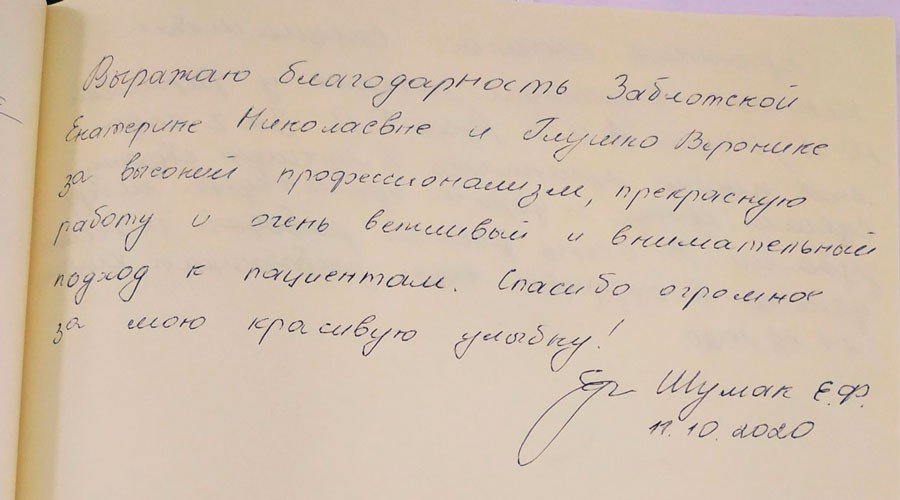 Выражаю благодарность Заблотской
Екатерине Николаевне и Глушко Веронике
за высокий профессионализм, прекрасную
работу и очень вежливый и внимательный
подход к пациентам. Спасибо огромное
за мою красивую улыбку!
Шумак Е.Ф.
11.10.2020